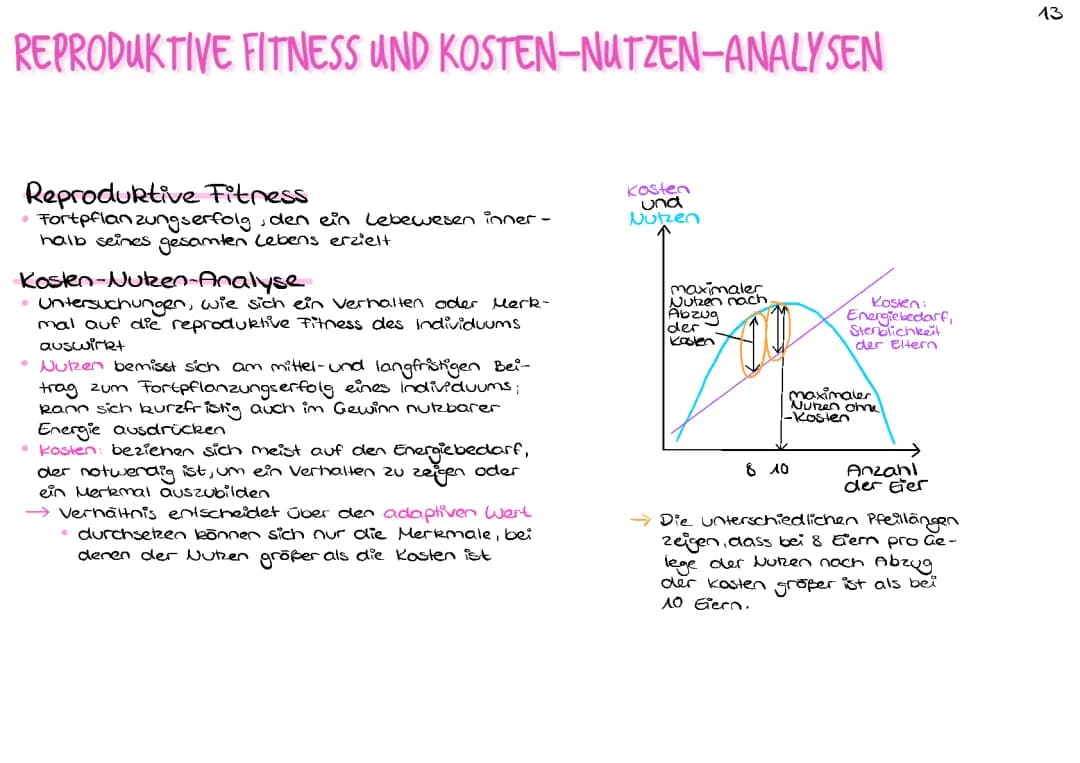 13
REPRODUKTIVE FITNESS UND KOSTEN-NUTZEN-ANALYSEN
Reproduktive Fitness
• Fortpflanzungserfolg, den ein Lebewesen inner-
halb seines gesamten Lebens erzielt
Kosten-Nutzen-Analyse
• Untersuchungen, wie sich ein Verhalten oder Merk-
mal auf die reproduktive Fitness des Individuums
auswirkt
• Nutzen bemisst sich am mittel- und langfristigen Bei-
trag zum Fortpflanzungserfolg eines Individuums;
kann sich kurzfristig auch im Gewinn nutzbarer
Energie ausdrücken
• Kosten: beziehen sich meist auf den Energiebedarf,
der notwendig ist, um ein Verhalten zu zeigen oder
ein Merkmal auszubilden
→ Verhältnis entscheidet über den adaptiven Wert
• durchsetzen können sich nur die Merkmale, bei
denen der Nutzen größer als die Kosten ist
Kosten
und
Nutzen
maximaler
Nutzen nach
Abzug
der
Kosten
Kosten:
Energiebedarf,
Sterblichkeit
der Eltern
maximaler
Nutzen ohne
-Kosten
8 10
Anzahl
der Eier
→ Die unterschiedlichen Pfeillängen
zeigen, dass bei 8 Eiern pro Ge-
lege der Nutzen nach Abzug
der Kosten größer ist als bei
10 Eiern.